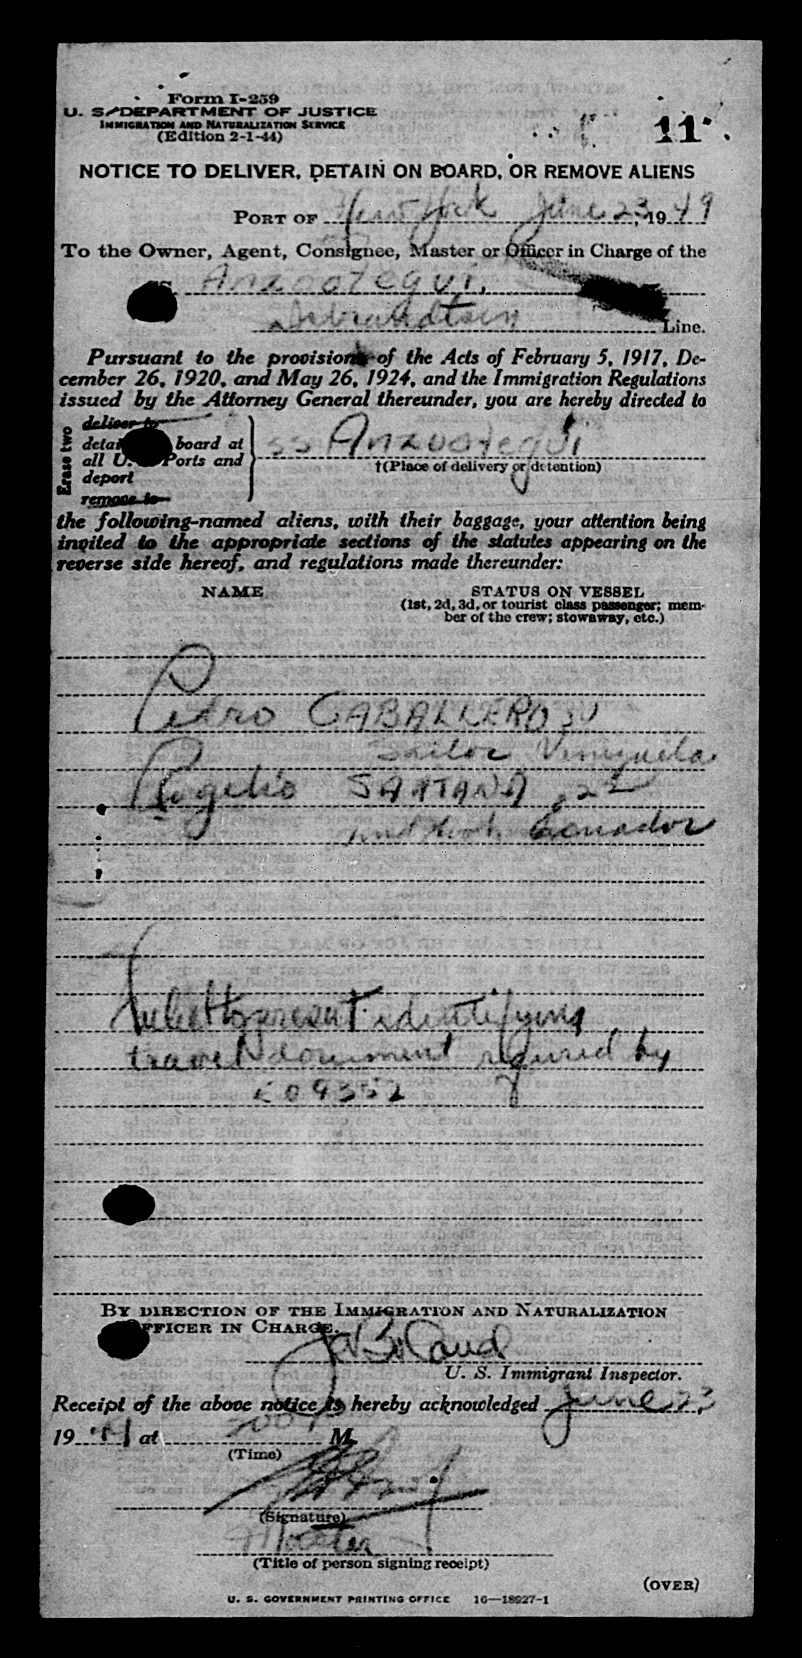 Form I-259
U. S. DEPARTMENT OF JUSTICE
IMMIGRATION AND NATURALIZATION SERVICE
(Edition 2-1-44)
11
NOTICE TO DELIVER, DETAIN ON BOARD, OR REMOVE ALIENS
PORT OF New York June 23, 1949
To the Owner, Agent, Consignee, Master or Officer in Charge of the
SS. Anzoategui,
Line.
Pursuant to the provisions of the Acts of February 5, 1917, De-
cember 26, 1920, and May 26, 1924, and the Immigration Regulations
issued by the Attorney General thereunder, you are hereby directed to
Erase two
deliver to
detain board at
all U. Ports and
deport
remove to
SS Anzoategui
†(Place of delivery or detention)
the following-named aliens, with their baggage, your attention being
invited to the appropriate sections of the statutes appearing on the
reverse side hereof, and regulations made thereunder:
NAME
STATUS ON VESSEL
(1st, 2d, 3d, or tourist class passenger; mem-
ber of the crew; stowaway, etc.)
Pedro CABALLERO 30
Sailor Venezuela
Rogelio SANTANA, 22
Ecuador
present identifying
travel document required by
EO 9352
BY DIRECTION OF THE IMMIGRATION AND NATURALIZATION
OFFICER IN CHARGE.
U. S. Immigrant Inspector.
Receipt of the above notice is hereby acknowledged June 23,
19 at M.
(Time)
(Signature)
Master
(Title of person signing receipt)
(OVER)
U. S. GOVERNMENT PRINTING OFFICE 16—18927-1